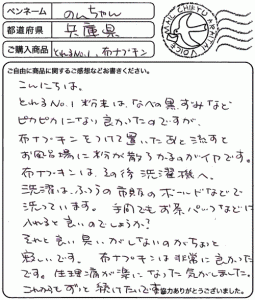 ペンネーム のんちゃん
都道府県 兵庫県
ご購入商品 とれるNo.1、布ナプキン
ご自由に商品に関するご感想などお書きください。
こんにちは。
とれるNo.1粉末は、なべの黒ずみなど
ピカピカになり良かったのですが、
布ナプキンをつけて置いたあと流すと
お風呂場に粉が散らかるのがイヤです。
布ナプキンは、その後洗濯機へ。
洗濯は、ふつうの市販のボールドなどで
洗っています。手間でもお茶パックなどに
入れると良いのでしょうか?
それと良い臭いがしないのがちょっと
寂しいです。布ナプキンは非常に良かった
です。生理痛が楽になった気がしました。
これからもずっと続けたいです
協力ありがとうございました。
MAIL CHIKYU ARAITAI VOICE